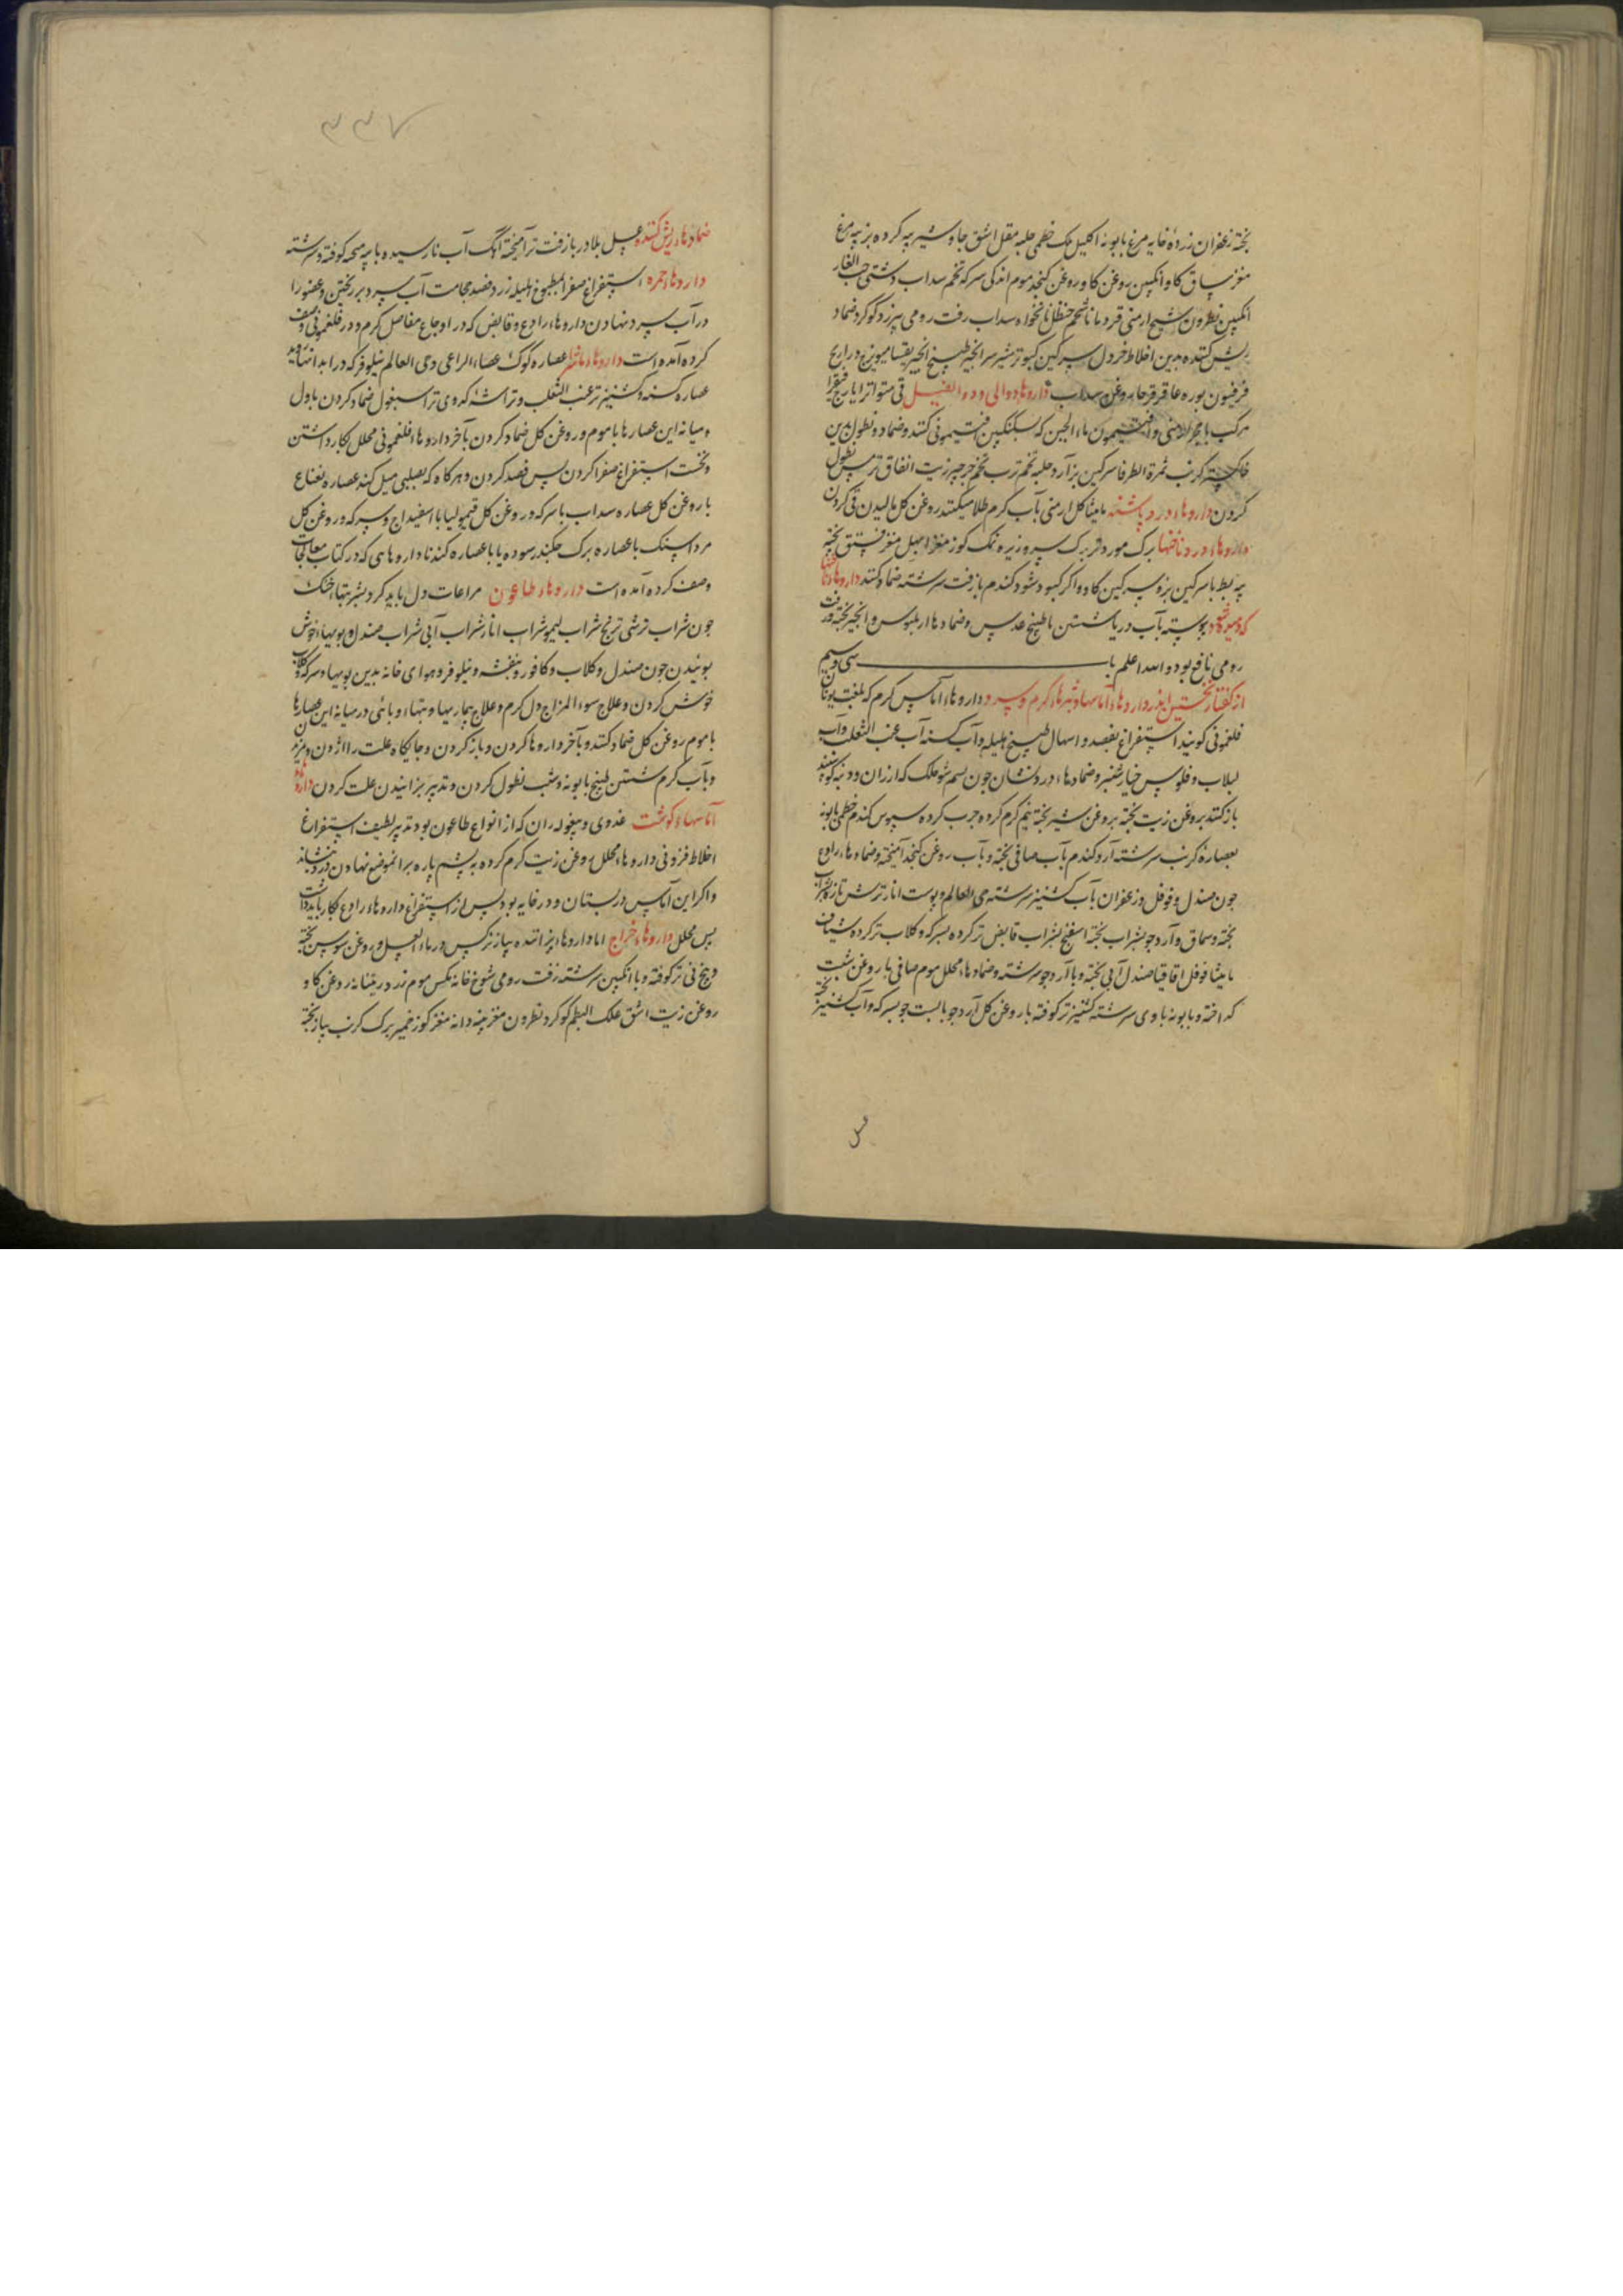 پخته زعفران زرده خایه مرغ بابونه اکلیل ملک خطمی حلبه مقل اشق جاوشیر پیه کرده بز پیه مرغ
مغز ساق کاو انکبین روغن کاو روغن کنجد موم اندکی سرکه تخم سداب دشتی حب الغار
انکبین نطرون شیح ارمنی قردمانا شحم حنظل نانخواه سداب زفت رومی بیرزد کوکرد ضماد
ریش کننده بدین اخلاط خردل سرکین کبوتر شیر سر انجیر طبیخ انجیر میویزج ذراریح
فرفیون بوره عاقرقرحا روغن سداب داروهاء دوالی و داء الفیل قی متواتر ایارج فیقرا
مرکب با حجر ارمنی و افتیمون ماء الجبن که بسکنکبین افتیمونی کنند و ضماد و نطول بدین
خاکستر کرنب ثمرة الطرفا سرکین بز آرد حلبه تخم ترب تخم جرجیر زیت انفاق ترمس نطول
کردن داروهاء درد پاشنه مامیثا کل ارمنی بآب کرم طلا میکنند روغن کل مالیدن قی کردن
داروهاء درد ناخنها برک مورد تر برک سرو زیره نمک کوز مغز ابهل مغز فستق پخته
پیه بط با سرکین بز و سرکین کاو و اکر کبود شود کندم با زفت سرشته ضماد کنند داروهاء ناخنها
که کوفته شود پیوسته بآب دریا شستن با طبیخ عدس و ضمادها از بلبوس و انجیر پخته و زفت
رومی نافع بود والله اعلم باب سی و سیم
از کفتار نخستین اندر داروهاء آماسها و بثرهاء کرم و سرد داروهاء آماس کرم که بلغت یونان
فلغمونی کویند استفراغ بفصد و اسهال طبیخ هلیله و آب کسنه آب عنب الثعلب و آب
لبلاب و فلوس خیار شنبر و ضمادهاء دردنشان جون پشم شوخکن که از ران و دنبه کوسپند
باز کنند بروغن زیت پخته بروغن شیر پخته نیم کرم کرده جرب کرده سبوس کندم خطمی بابونه
بعصاره کرنب سرشته آرد کندم بآب صافی پخته و بآب روغن کنجد آمیخته و ضمادهاء رادع
جون صندل و فوفل و زعفران بآب کشنیز سرشته حی العالم و پوست انار ترش تازه بشراب
پخته و سماق و آرد جو بشراب پخته اسفنج بشراب قابض تر کرده بسرکه و کلاب تر کرده شیاف
مامیثا فوفل اقاقیا صندل آبی پخته و با آرد جو سرشته و ضمادهاء محلل موم صافی با روغن شبت
کداخته و بابونه با وی سرشته کشنیز تر کوفته با روغن کل آرد جو با پست جو بسرکه و آب کشنیز پخته
۳۳۷
ضمادهاء ریش کننده عسل بلادر با زفت تر آمیخته آهک آب نارسیده با پیه کوفته و سرشته
داروهاء حمره استفراغ صفرا بمطبوخ هلیله زرد فصد حجامت آب سرد بر ریختن و عضو را
در آب سرد نهادن داروهاء رادع و قابض که در اوجاع مفاصل کرم و در فلغمونی وصف
کرده آمده است داروهاء ماشرا عصاره کوک عصاء الراعی و حی العالم نیلوفر که در ابدانها روید
عصاره کسنه و کشنیز تر عنب الثعلب و تراشه کدوی تر اسبغول ضماد کردن باول
و میانه این عصارها با موم و روغن کل ضماد کردن بآخر داروهاء فلغمونی محلل بکار داشتن
و نخست استفراغ صفرا کردن پس فصد کردن و هرکاه که بصلبی میل کند عصاره نعناع
با روغن کل عصاره سداب با سرکه و روغن کل قیمولیا با اسفیداج و سرکه و روغن کل
مرداسنک با عصاره برک جکندر سوده یا با عصاره کندنا دارهایی که در کتاب معالجات
وصف کرده آمده است داروهاء طاعون مراعات دل باید کرد بشربتهاء خنک
جون شراب ترشی ترنج شراب لیمو شراب انار شراب آبی شراب صندل و بویهاء خوش
بوئیدن جون صندل و کلاب و کافور و بنفشه و نیلوفر و هوای خانه بدین بویها و سرکه و کلاب
خوش کردن و علاج سوء المزاج دل کرم و علاج بیماریها و تبهاء وبائی در میانه این عصارها
با موم روغن کل ضماد کنند و بآخر داروها کردن و باز کردن و جایکاه علت را آژدن و مزیدن
و بآب کرم شستن طبیخ بابونه و شبت نطول کردن و تدبیر پزانیدن علت کردن داروهاء
آماسهاء کوشت غددی و بیغوله ران که از انواع طاعون بود تدبیر لطیف استفراغ
اخلاط فزونی داروهاء محلل روغن زیت کرم کرده به پشم پاره بر آن موضع نهادن درد بنشاند
و اکر این آماس در پستان و در خایه بود پس از استفراغ داروهاء رادع بکار باید داشت
پس محلل داروهاء خراج اما داروهاء پزاننده پیاز نرکس در ماء العسل و روغن سوسن پخته
و بیخ نی تر کوفته و با انکبین سرشته زفت رومی شوخ خانه مکس موم زرد ریتیانه روغن کاو
روغن زیت اشق علک البطم کوکرد نطرون مغز پنبه دانه مغز کوز خمیر برک کرنب پیاز پخته